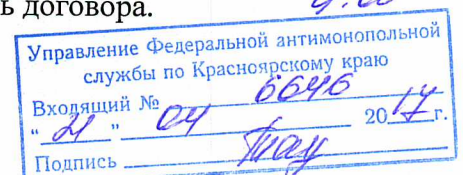 ь договора.
Управление Федеральной антимонопольной
службы по Красноярскому краю
Входящий № 6646
"21" 04 2017 г.
Подпись